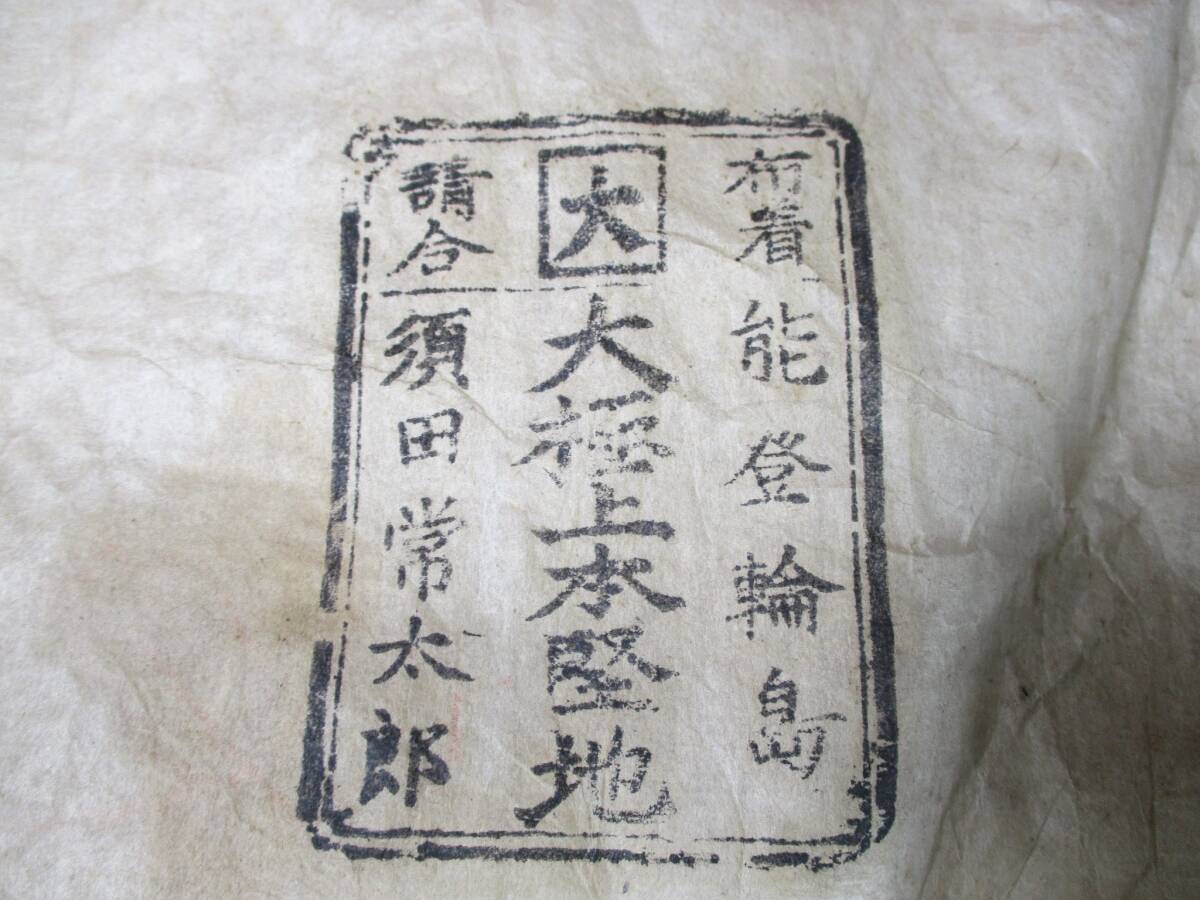 布着 能登輪島
大 大極上本堅地
請合 須田常太郎